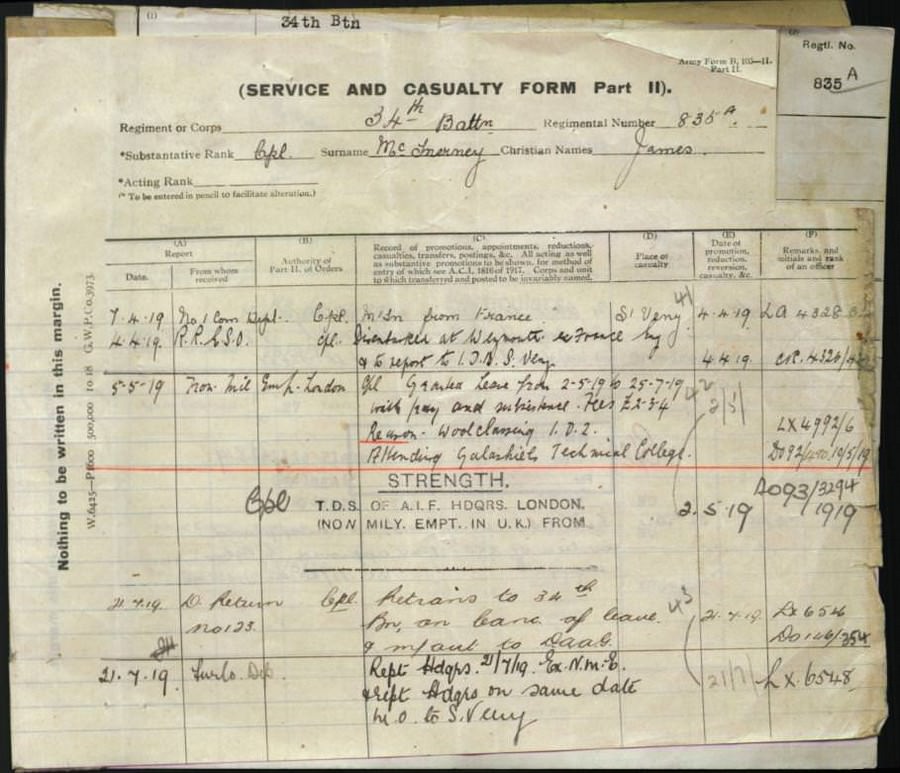 (1)
34th Btn
Regtl. No.
835 A
Army Form B. 103—II.
Part II.
(SERVICE AND CASUALTY FORM Part II).
Regiment or Corps 34th Battn Regimental Number 835 A.
*Substantative Rank Cpl. Surname McInerney Christian Names James.
*Acting Rank
(* To be entered in pencil to facilitate alteration.)
Nothing to be written in this margin.
(A)
Report
Date.
From whom
received
(B)
Authority of
Part II. of Orders
(C)
Record of promotions, appointments, reductions,
casualties, transfers, postings, &c. All acting as well
as substantive promotions to be shown, for method of
entry of which see A.C.I. 1816 of 1917. Corps and unit
to which transferred and posted to be invariably named.
(D)
Place of
casualty
(E)
Date of
promotion,
reduction,
reversion,
casualty, &c.
(F)
Remarks, and
initials and rank
of an officer
7.4.19 No 1 Com Dept. Cpl. M'In from France S. Veny 4.4.19 LA 4328
4.4.19. cpl. Disembarked at Weymouth ex France
& to report to S. Veny. 4.4.19. 4326
5-5-19 Non Mil Emp. London Cpl Granted Leave from 2-5-19 to 25-7-19 42
with pay and subsistence. Fees £2-5-4 2/5/
Reason - Woolclassing LX4992/6
Attending Galashiels Technical College. 10/5/19
STRENGTH.
Cpl T.D.S. OF A.I.F. HDQRS. LONDON. 2.5.19 DO93/3294
(NON MILY. EMPT. IN U.K.) FROM 1919
21.7.19. D. Return Cpl. Retrans to 34th 43 21.7.19. LX 6546
No 123. Bn, on canc. of leave
& m/out to DAAG.
21.7.19. Rept Hdqrs. 21/7/19. Ex. N.M.E. 21/7/ LX. 6548
& rept Hdqrs on same date
M.O. to S. Veny